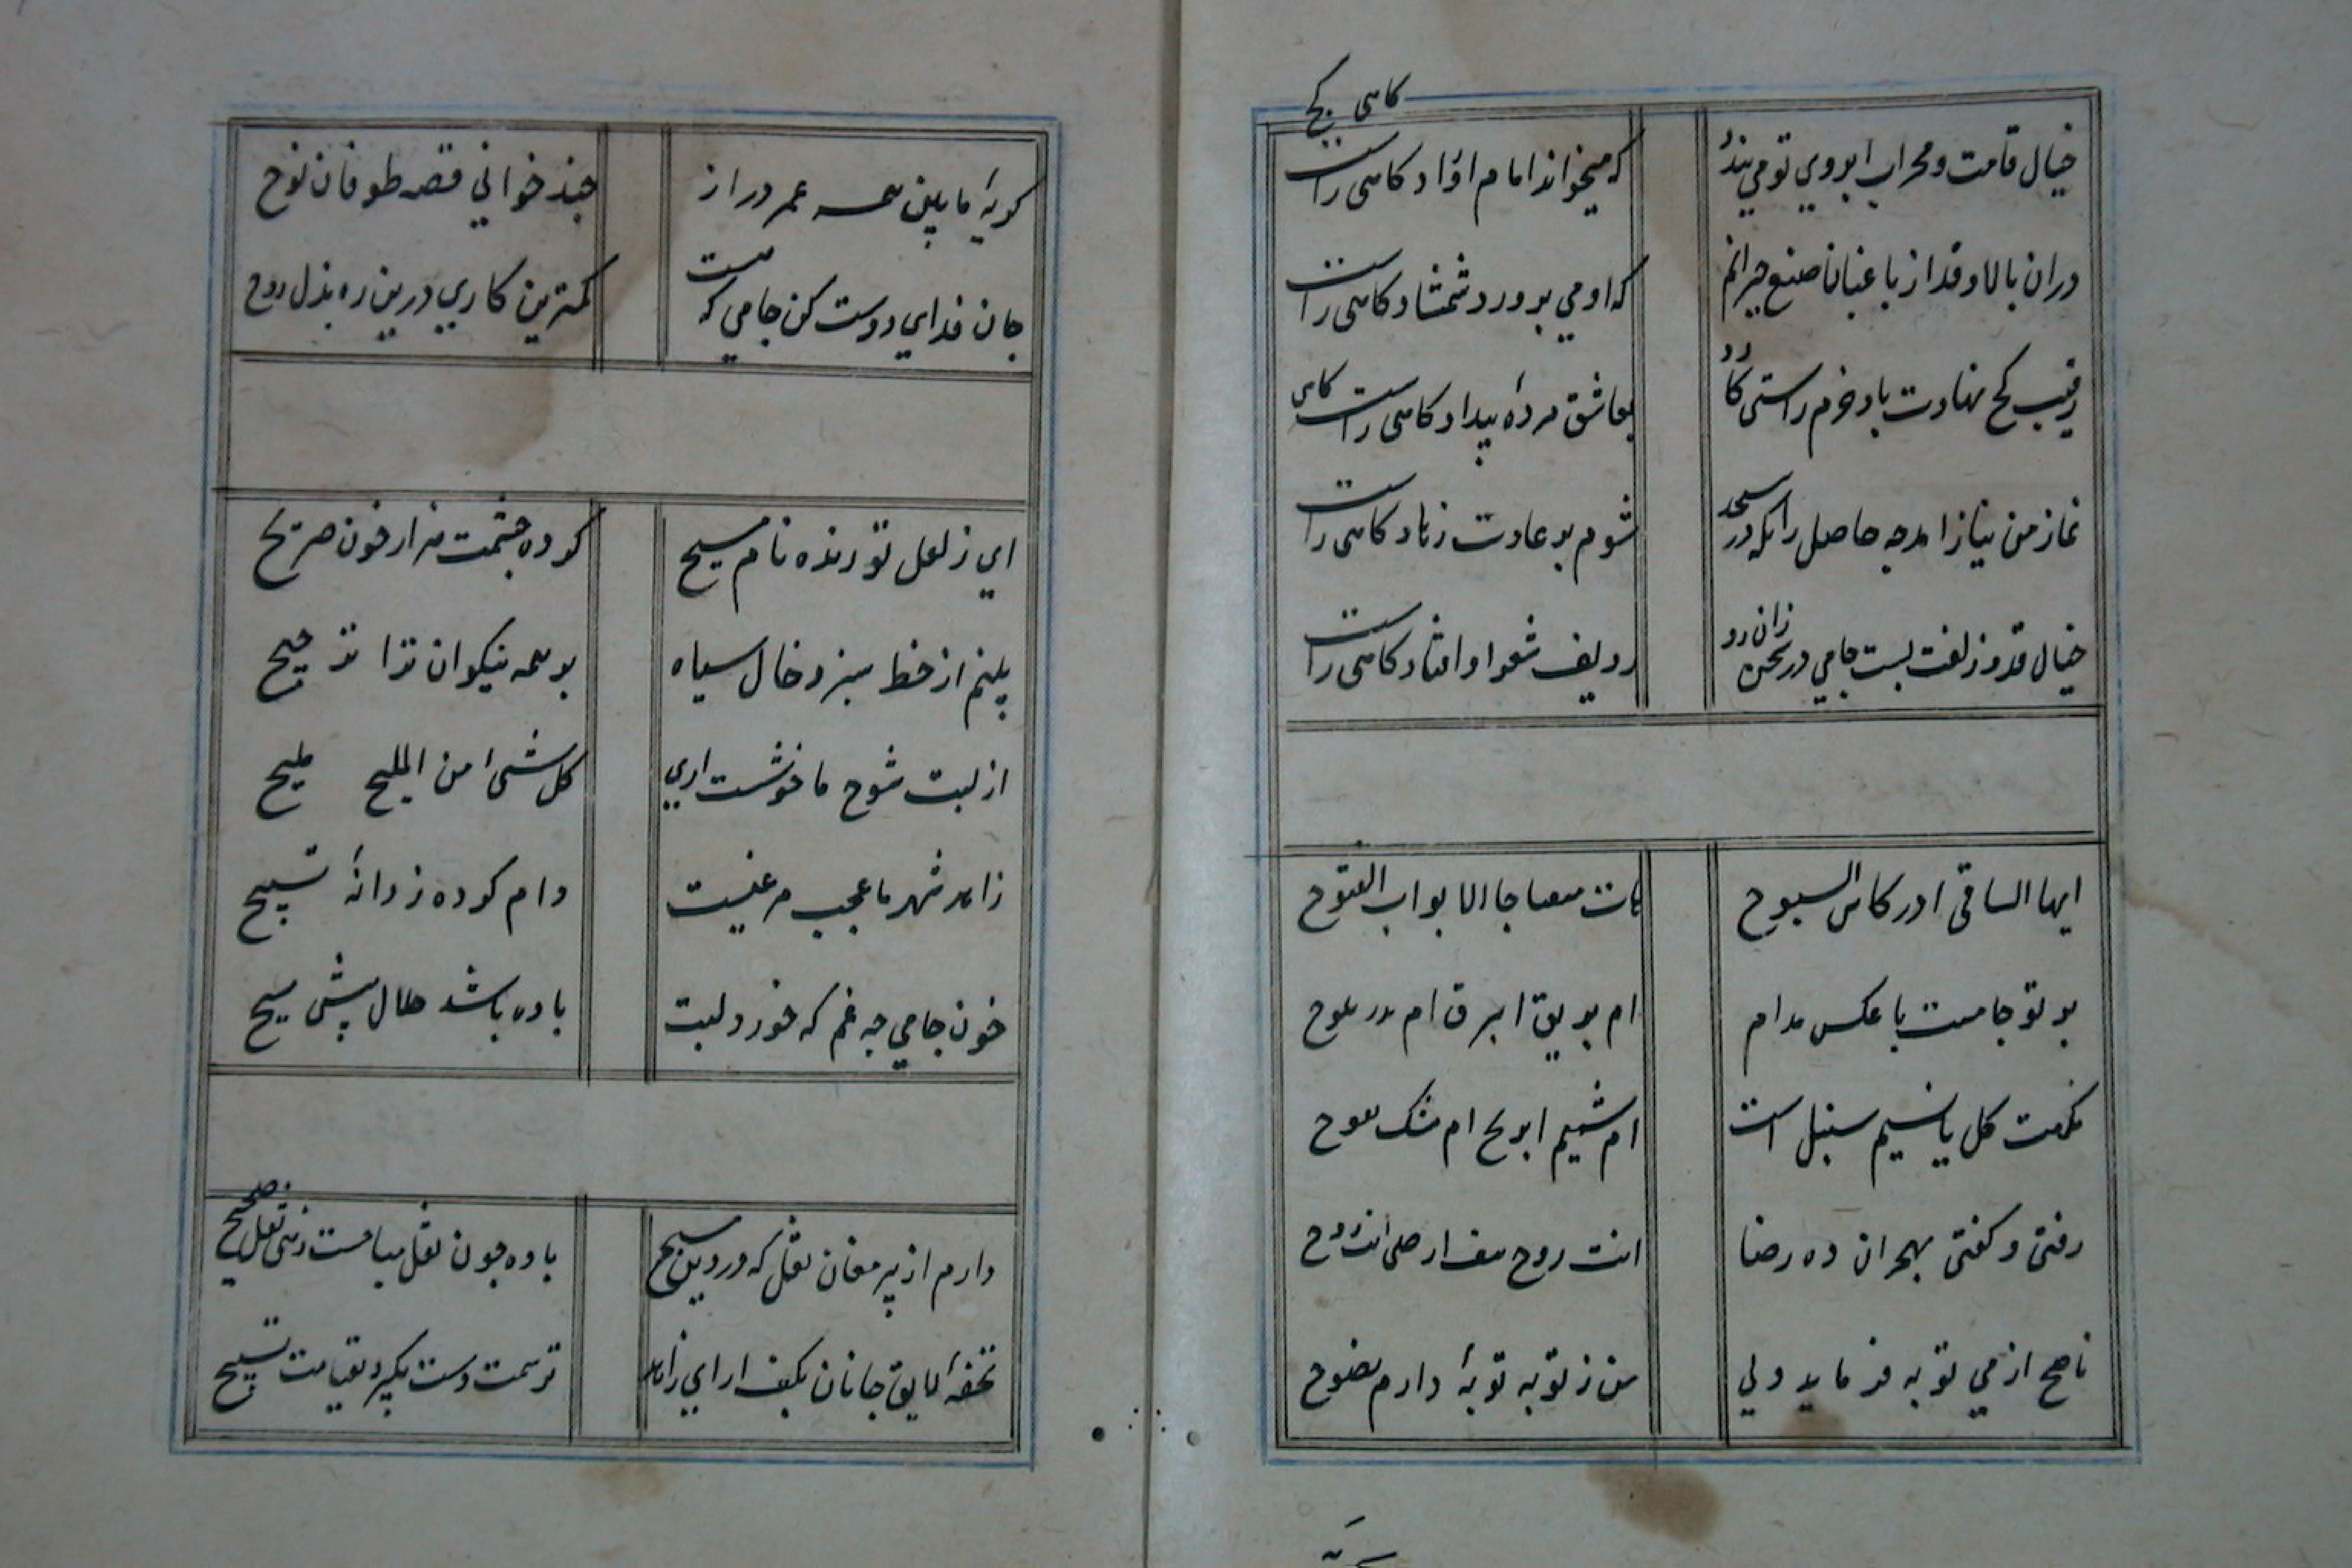 کاهی کج
خیال قامت و محراب ابروی تو می بندد
که میخواند امام اوراد کاهی راست
دران بالا و قد از باغبان صنع حیرانم
که او می پرورد شمشاد کاهی راست
رقیب کج نهادت باد خرم راستی کارد
بعاشق مژده بیداد کاهی راست کاهی
نماز من نیاز امد چه حاصل زانکه در مسجد
شوم بر عادت زهاد کاهی راست
خیال قد و زلفت بست جامی در سخن زان رو
ردیف شعر او افتاد کاهی راست
ایها الساقی ادر کاس الصبوح
هات مفتاحا لابواب الفتوح
پرتو جامست یا عکس مدام
ام بریق البرق ام بدر یلوح
نکهت کل یا نسیم سنبل است
ام شمیم الریح ام مشک یفوح
رفتی و کفتی بهجران ده رضا
انت روح
ناصح از می توبه فرماید ولی
من ز توبه توبهٔ دارم نصوح
کریهٔ ما بین همه عمر دراز
چند خوانی قصه طوفان نوح
جان فدای دوست کن جامی که هست
کمترین کاری درین ره بذل روح
ای ز لعل تو زنده نام مسیح
کرده چشمت هزار خون صریح
بینم از خط سبز و خال سیاه
بر همه نیکوان ترا ترجیح
از لبت شوخ ما خوشست اری
کل شیء من الملیح ملیح
زاهد شهر ما عجب مرغیست
دام کرده ز دانهٔ تسبیح
خون جامی چه غم که خورد لبت
باده باشد حلال پیش مسیح
دارم از پیر مغان نقل که در دین مسیح
باده چون نقل مباحست زهی نقل صحیح
تحفهٔ لایق جانان بکف ار ای زاهد
ترسمت دست نکیرد بقیامت تسبیح